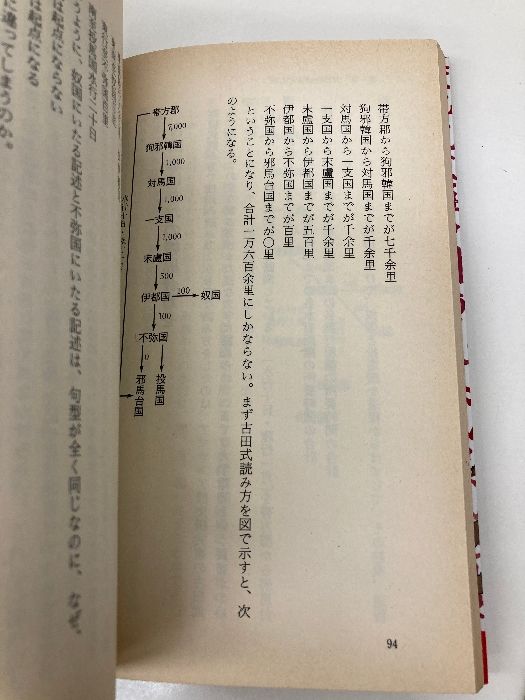 帯方郡から狗邪韓国までが七千余里
狗邪韓国から対馬国までが千余里
対馬国から一支国までが千余里
一支国から末盧国までが千余里
末盧国から伊都国までが五百里
伊都国から不弥国までが百里
不弥国から邪馬台国までが〇里
ということになり、合計一万六百余里にしかならない。まず古田式読み方を図で示すと、次
のようになる。
帯方郡
7,000
狗邪韓国
1,000
対馬国
1,000
一支国
1,000
末盧国
500
伊都国
100
奴国
100
不弥国
0
邪馬台国
投馬国
94
うように、奴国にいたる記述と不弥国にいたる記述は、句型が全く同じなのに、なぜ、
は起点にならない
は起点になる
に違ってしまうのか。